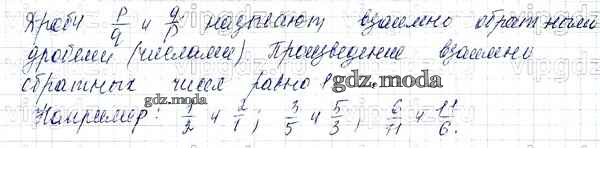 Дроби p/q и q/p называют взаимно обратными
дробями (числами) Произведение взаимно
обратных чисел равно 1
gdz.moda
gdz.moda
Например: 1/2 и 2/1; 3/5 и 5/3, 6/11 и 11/6.